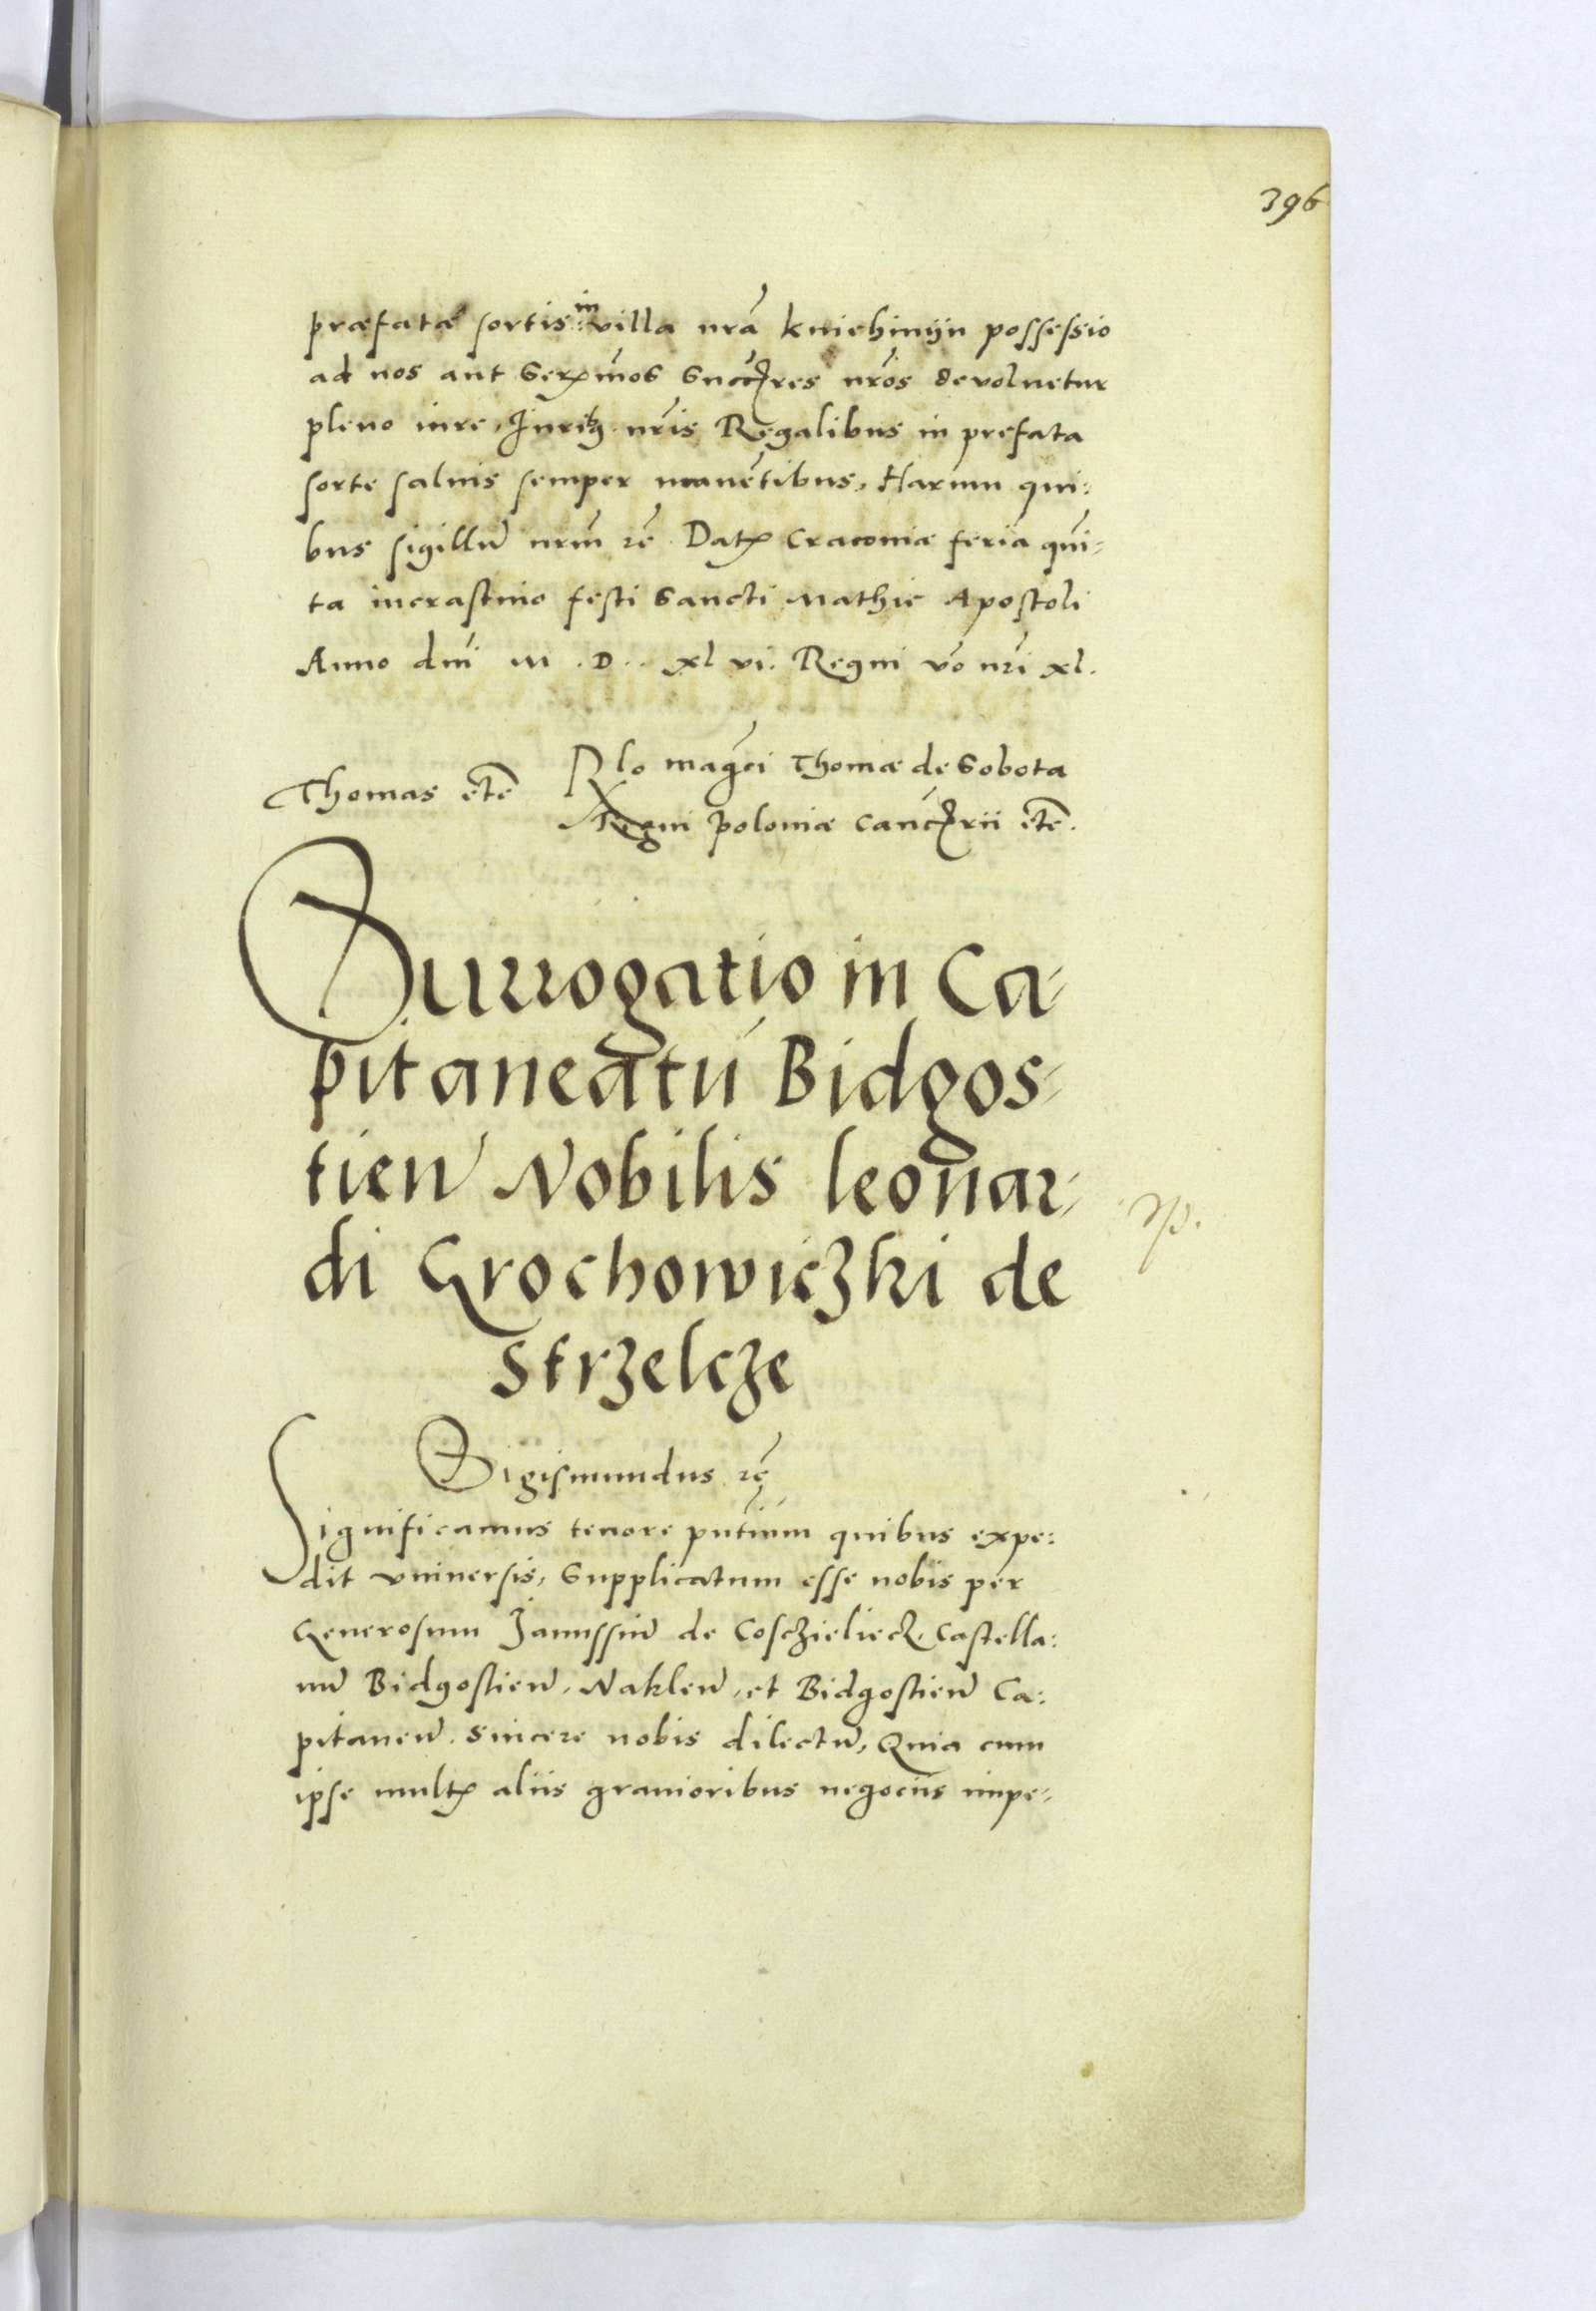 396
præfatæ sortis in villa nrã kniehiniyn possessio
ad nos aut Serṁos Succres nros devoluetur
pleno iure, Juribꝫ nris Regalibus in prefata
sorte saluis semper manẽtibus, Harum qui:
bus sigillũ nrm rẽ Datꝫ Cracoviæ feria qui-
ta incrastino festi Sancti Mathie Apostoli
Anno dni M . D . xl vi. Regni vo nri xl.
Thomas etc̃
Rlo magci Thomæ de Sobota
Regni poloniæ cancrii etc̃.
Surrogatio in Ca-
pitaneatu Bidgos-
tien̄ Nobilis leonar-
di Grochowiczki de
Strzelcze
Sigismundus rẽ
Significamus tenore pntium quibus expe:
dit vniuersis, Supplicatum esse nobis per
Generosum Janussiũ de Coschielecz, Castella:
nũ Bidgostien̄, Naklen̄, et Bidgostien̄ Ca:
pitaneũ. sincere nobis dilectũ, Quia cum
ipse multꝫ aliis gravioribus negociis impe-